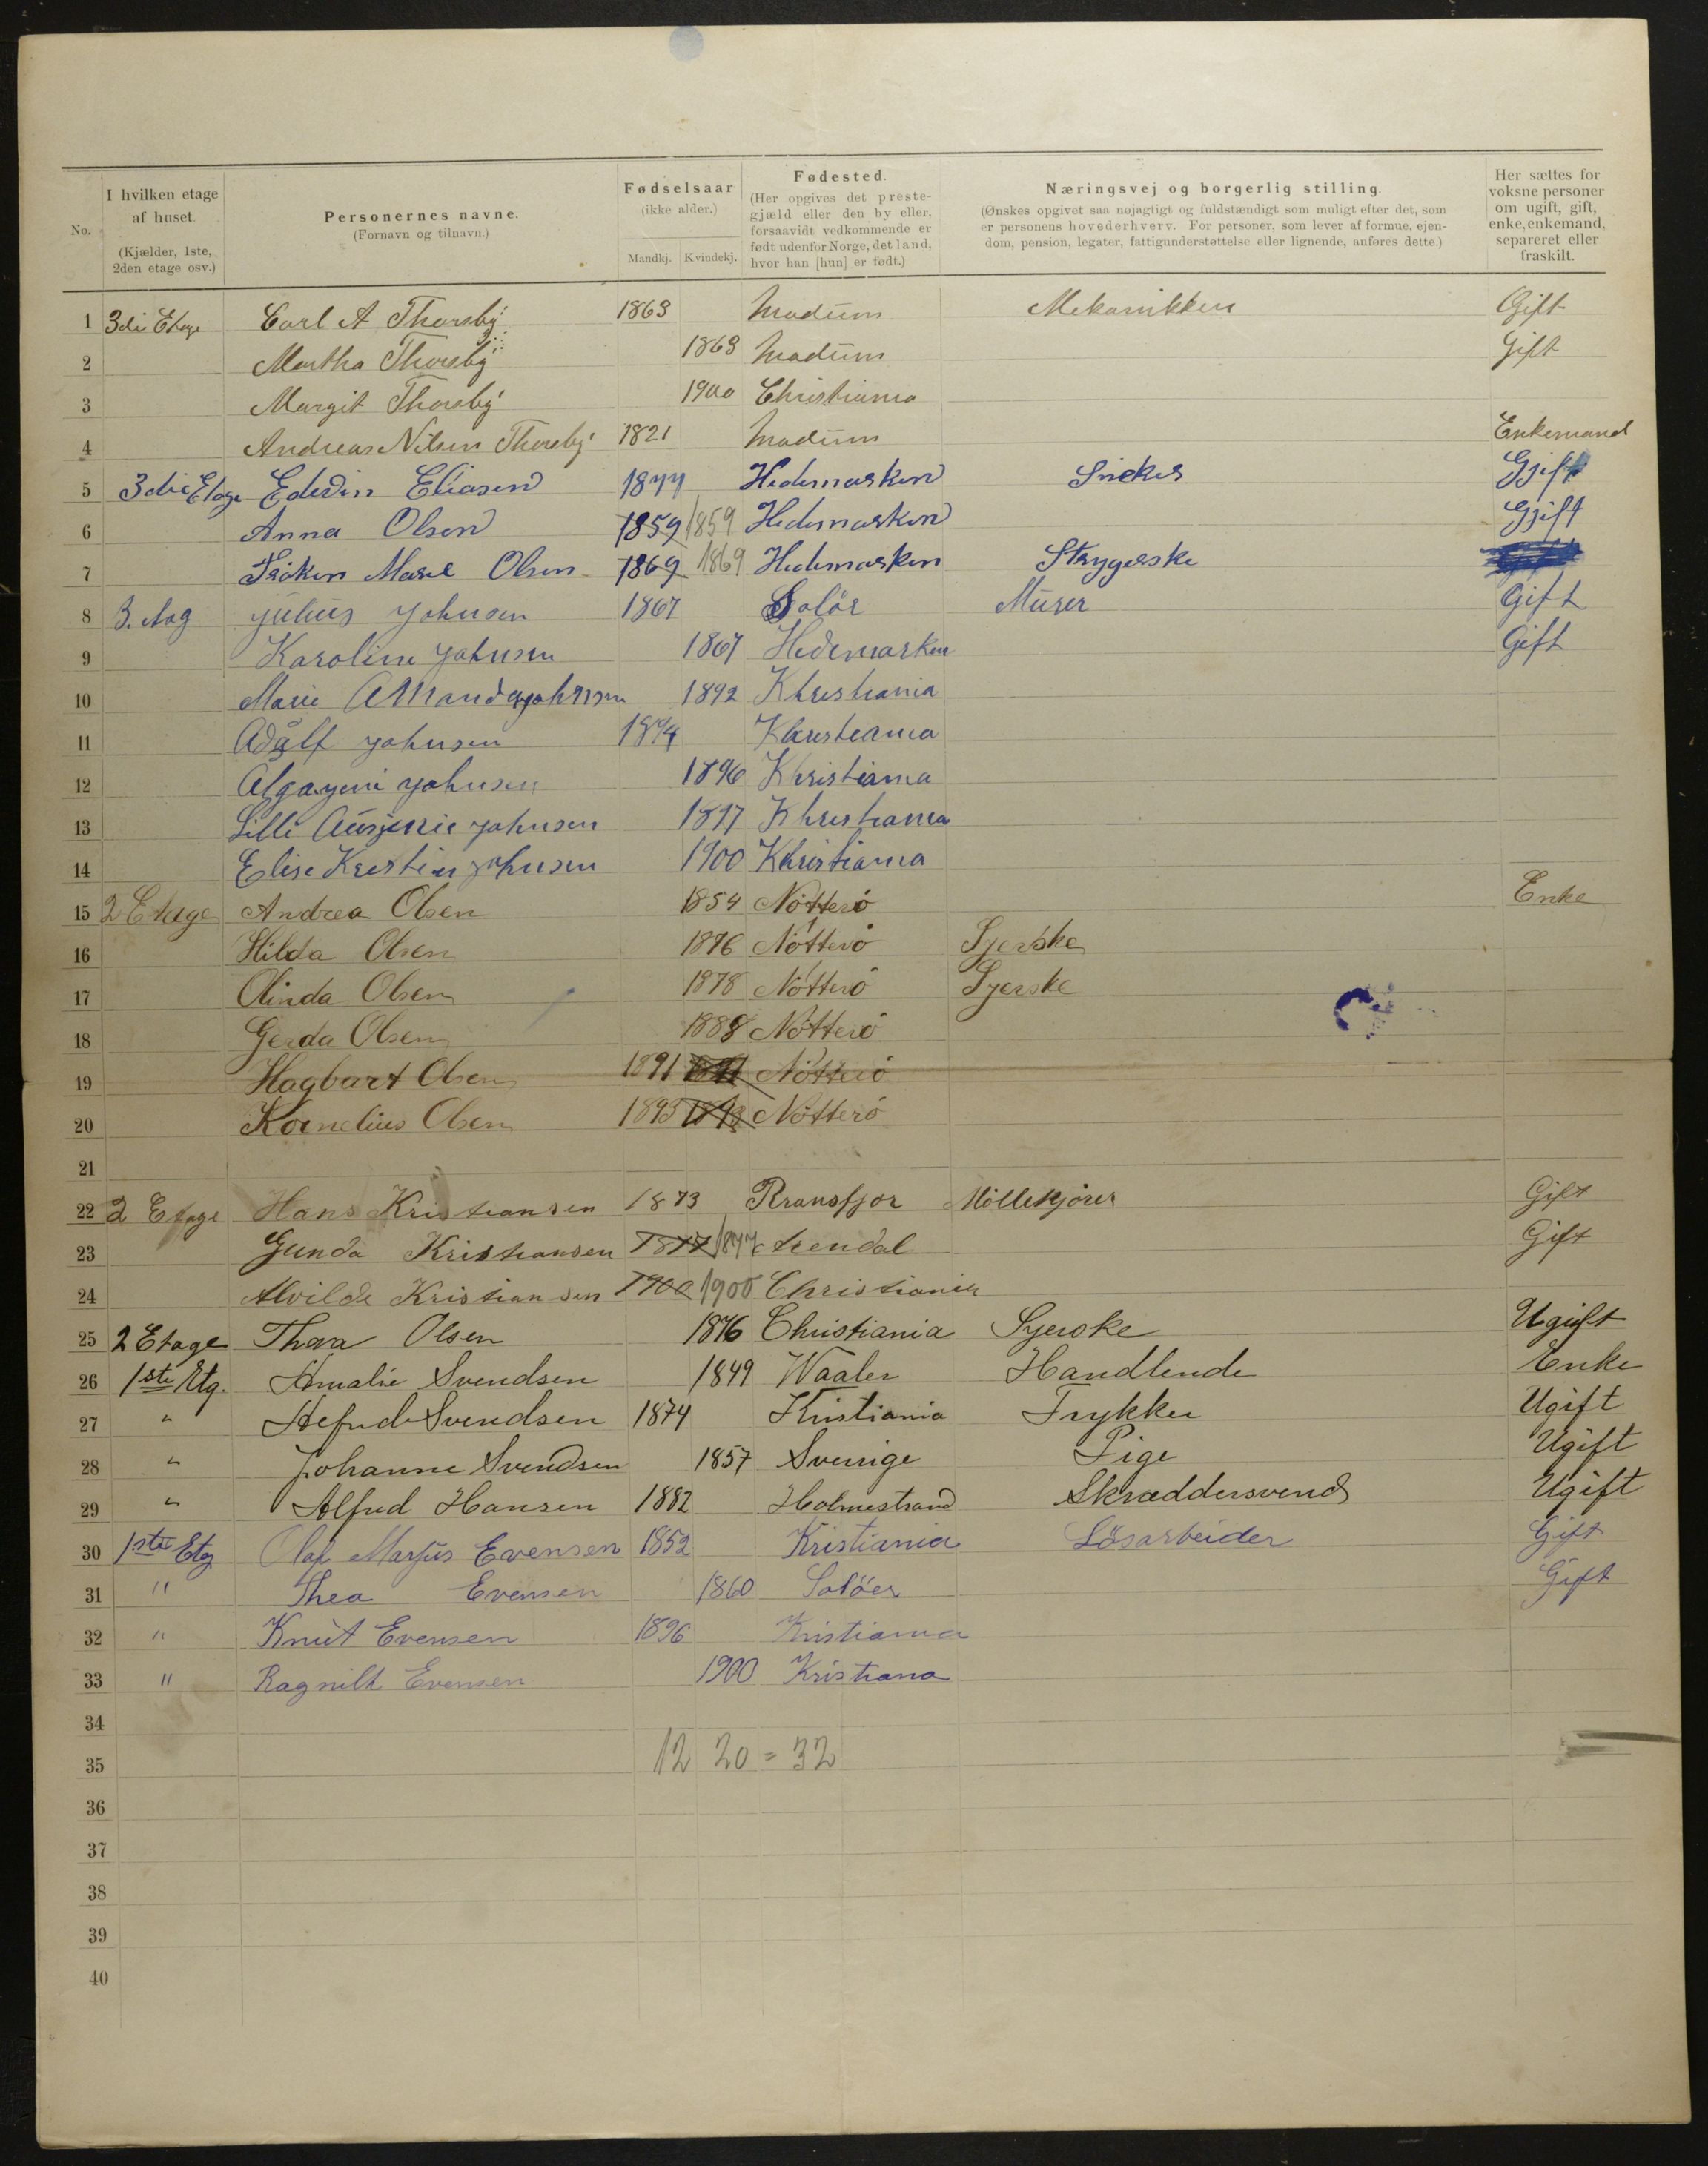 No.
I hvilken etage
af huset.
(Kjælder, 1ste,
2den etage osv.)
Personernes navne.
(Fornavn og tilnavn.)
Fødselsaar
(ikke alder.)
Mandkj. Kvindekj.
Fødested.
(Her opgives det preste-
gjæld eller den by eller,
forsaavidt vedkommende er
født udenfor Norge, det land,
hvor han [hun] er født.)
Næringsvej og borgerlig stilling.
(Ønskes opgivet saa nøjagtigt og fuldstændigt som muligt efter det, som
er personens hovederhverv. For personer, som lever af formue, ejen-
dom, pension, legater, fattigunderstøttelse eller lignende, anføres dette.)
Her sættes for
voksne personer
om ugift, gift,
enke, enkemand,
separeret eller
fraskilt.
1 3di Etage Carl A Thorsby 1863 Modum Mekanikker Gift
2 Martha Thorsby 1863 Modum Gift
3 Margit Thorsby 1900 Christiania
4 Andreas Nilsen Thorsby 1821 Modum Enkemand
5 3die Etage Edvin Eliasen 1877 Hedemarken Sneker Gjift
6 Anna Olsen 1859 1859 Hedemarken Gjift
7 Frøken Marie Olsen 1869 1869 Hedemarken Strygerske
8 3. Aag Julius Johnsen 1867 Solør Murer Gift
9 Karoline Johnsen 1867 Hedemarken Gift
10 Marie Amanda Johnsen 1892 Khristiania
11 Adolf Johnsen 1894 Khristiania
12 Johnsen 1896 Khristiania
13 Lilli Johnsen 1897 Khristiania
14 Elise Kristin Johnsen 1900 Khristiania
15 2 Etage Andrea Olsen 1854 Nøtterø Enke
16 Hilda Olsen 1876 Nøtterø Syerske
17 Olinda Olsen 1878 Nøtterø Syerske
18 Gerda Olsen 1888 Nøtterø
19 Hagbart Olsen 1891 1891 Nøtterø
20 Kornelius Olsen 1893 1893 Nøtterø
21
22 2 Etage Hans Kristiansen 1873 Ransfjor Møllekjører Gift
23 Gunda Kristiansen 1877 1877 Arendal Gift
24 Alvilde Kristiansen 1900 1900 Christiania
25 2 Etage Thora Olsen 1876 Christiania Syerske Ugift
26 1ste Etg. Amalie Svendsen 1849 Waaler Handlende Enke
27 " Alfred Svendsen 1874 Kristiania Trykker Ugift
28 " Johanne Svendsen 1857 Sverige Pige Ugift
29 " Alfred Hansen 1882 Holmestrand Skræddersvend Ugift
30 1ste Etg Olaf Marius Evensen 1852 Kristiania Løsarbeider Gift
31 " Thea Evensen 1860 Soløer Gift
32 " Knut Evensen 1896 Kristiania
33 " Ragnilh Evensen 1900 Kristiana
34
35 12 20 = 32
36
37
38
39
40